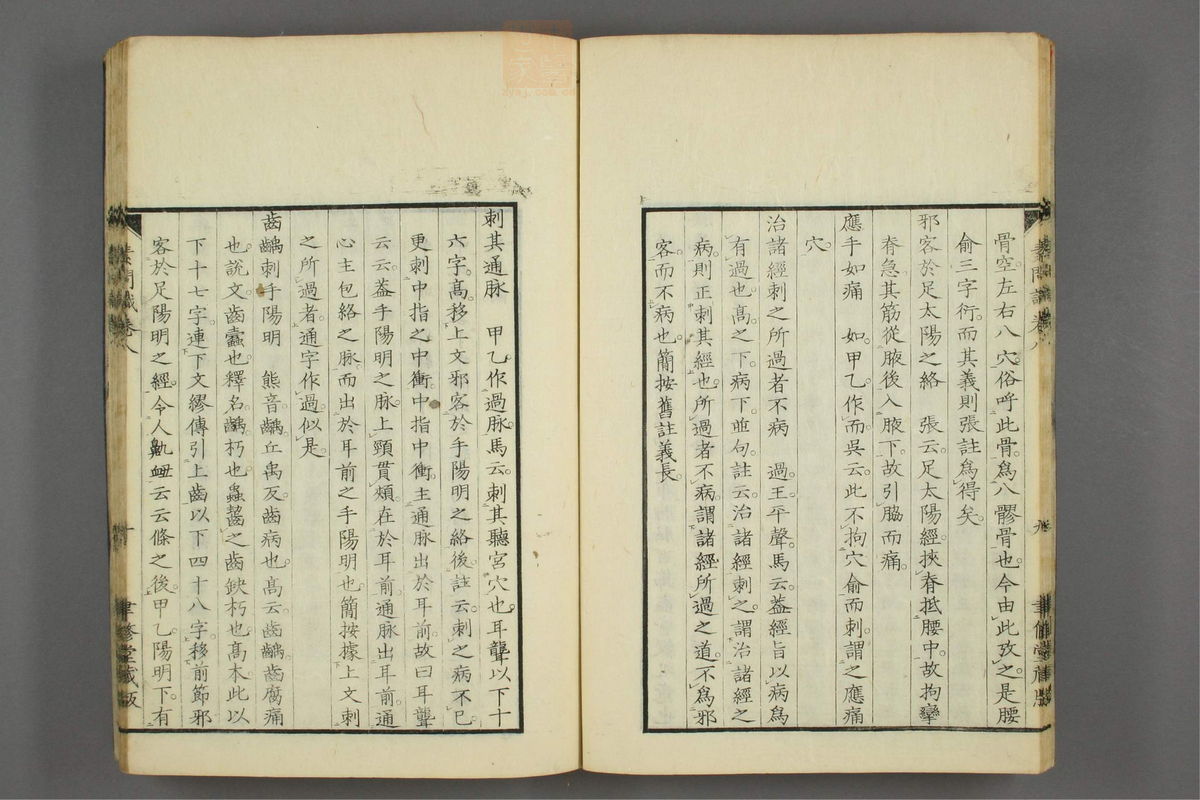 骨空左右八穴俗呼此骨爲八髎骨也今由此攷之是腰
俞三字衍而其義則張註爲得矣
邪客於足太陽之絡 張云足太陽經挾脊抵腰中故拘攣
脊急其筋從腋後入腋下故引脇而痛
應手如痛 如甲乙作而吳云此不拘穴俞而刺謂之應痛
穴
治諸經刺之所過者不病 過王平聲馬云蓋經旨以病爲
有過也高之下病下並句註云治諸經刺之謂治諸經之
病則正刺其經也所過者不病謂諸經所過之道不爲邪
客而不病也簡按舊註義長
九
刺其通脉 甲乙作過脉馬云刺其聽宮穴也耳聾以下十
六字高移上文邪客於手陽明之絡後註云刺之病不已
更刺中指之中衝中指中衝主通脉出於耳前故曰耳聾
云云蓋手陽明之脉上頸貫頰在於耳前通脉出耳前通
心主包絡之脉而出於耳前之手陽明也簡按據上文刺
之所過者通字作過似是
齒齲刺手陽明 熊音齲丘禹反齒病也高云齒齲齒腐痛
也說文齒蠹也釋名齲朽也蟲齧之齒缺朽也高本此以
下十七字連下文繆傳引上齒以下四十八字移前節邪
客於足陽明之經令人鼽衄云云條之後甲乙陽明下有
素問識卷八
十
聿修堂藏版